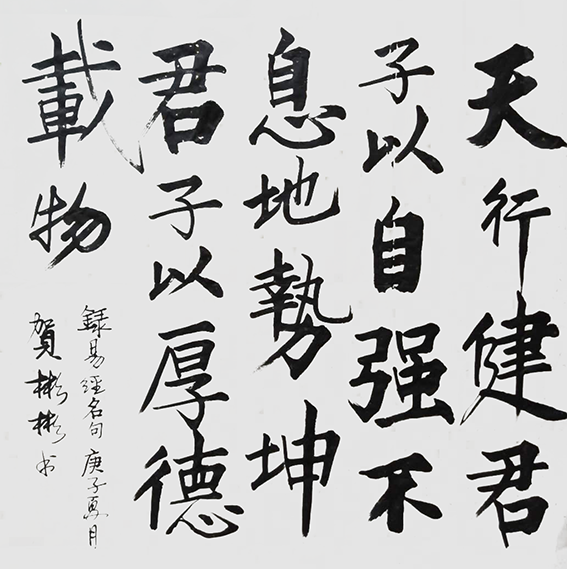 天行健君
子以自强不
息地勢坤
君子以厚德
載物
録易經名句庚子夏月
賀彬彬书